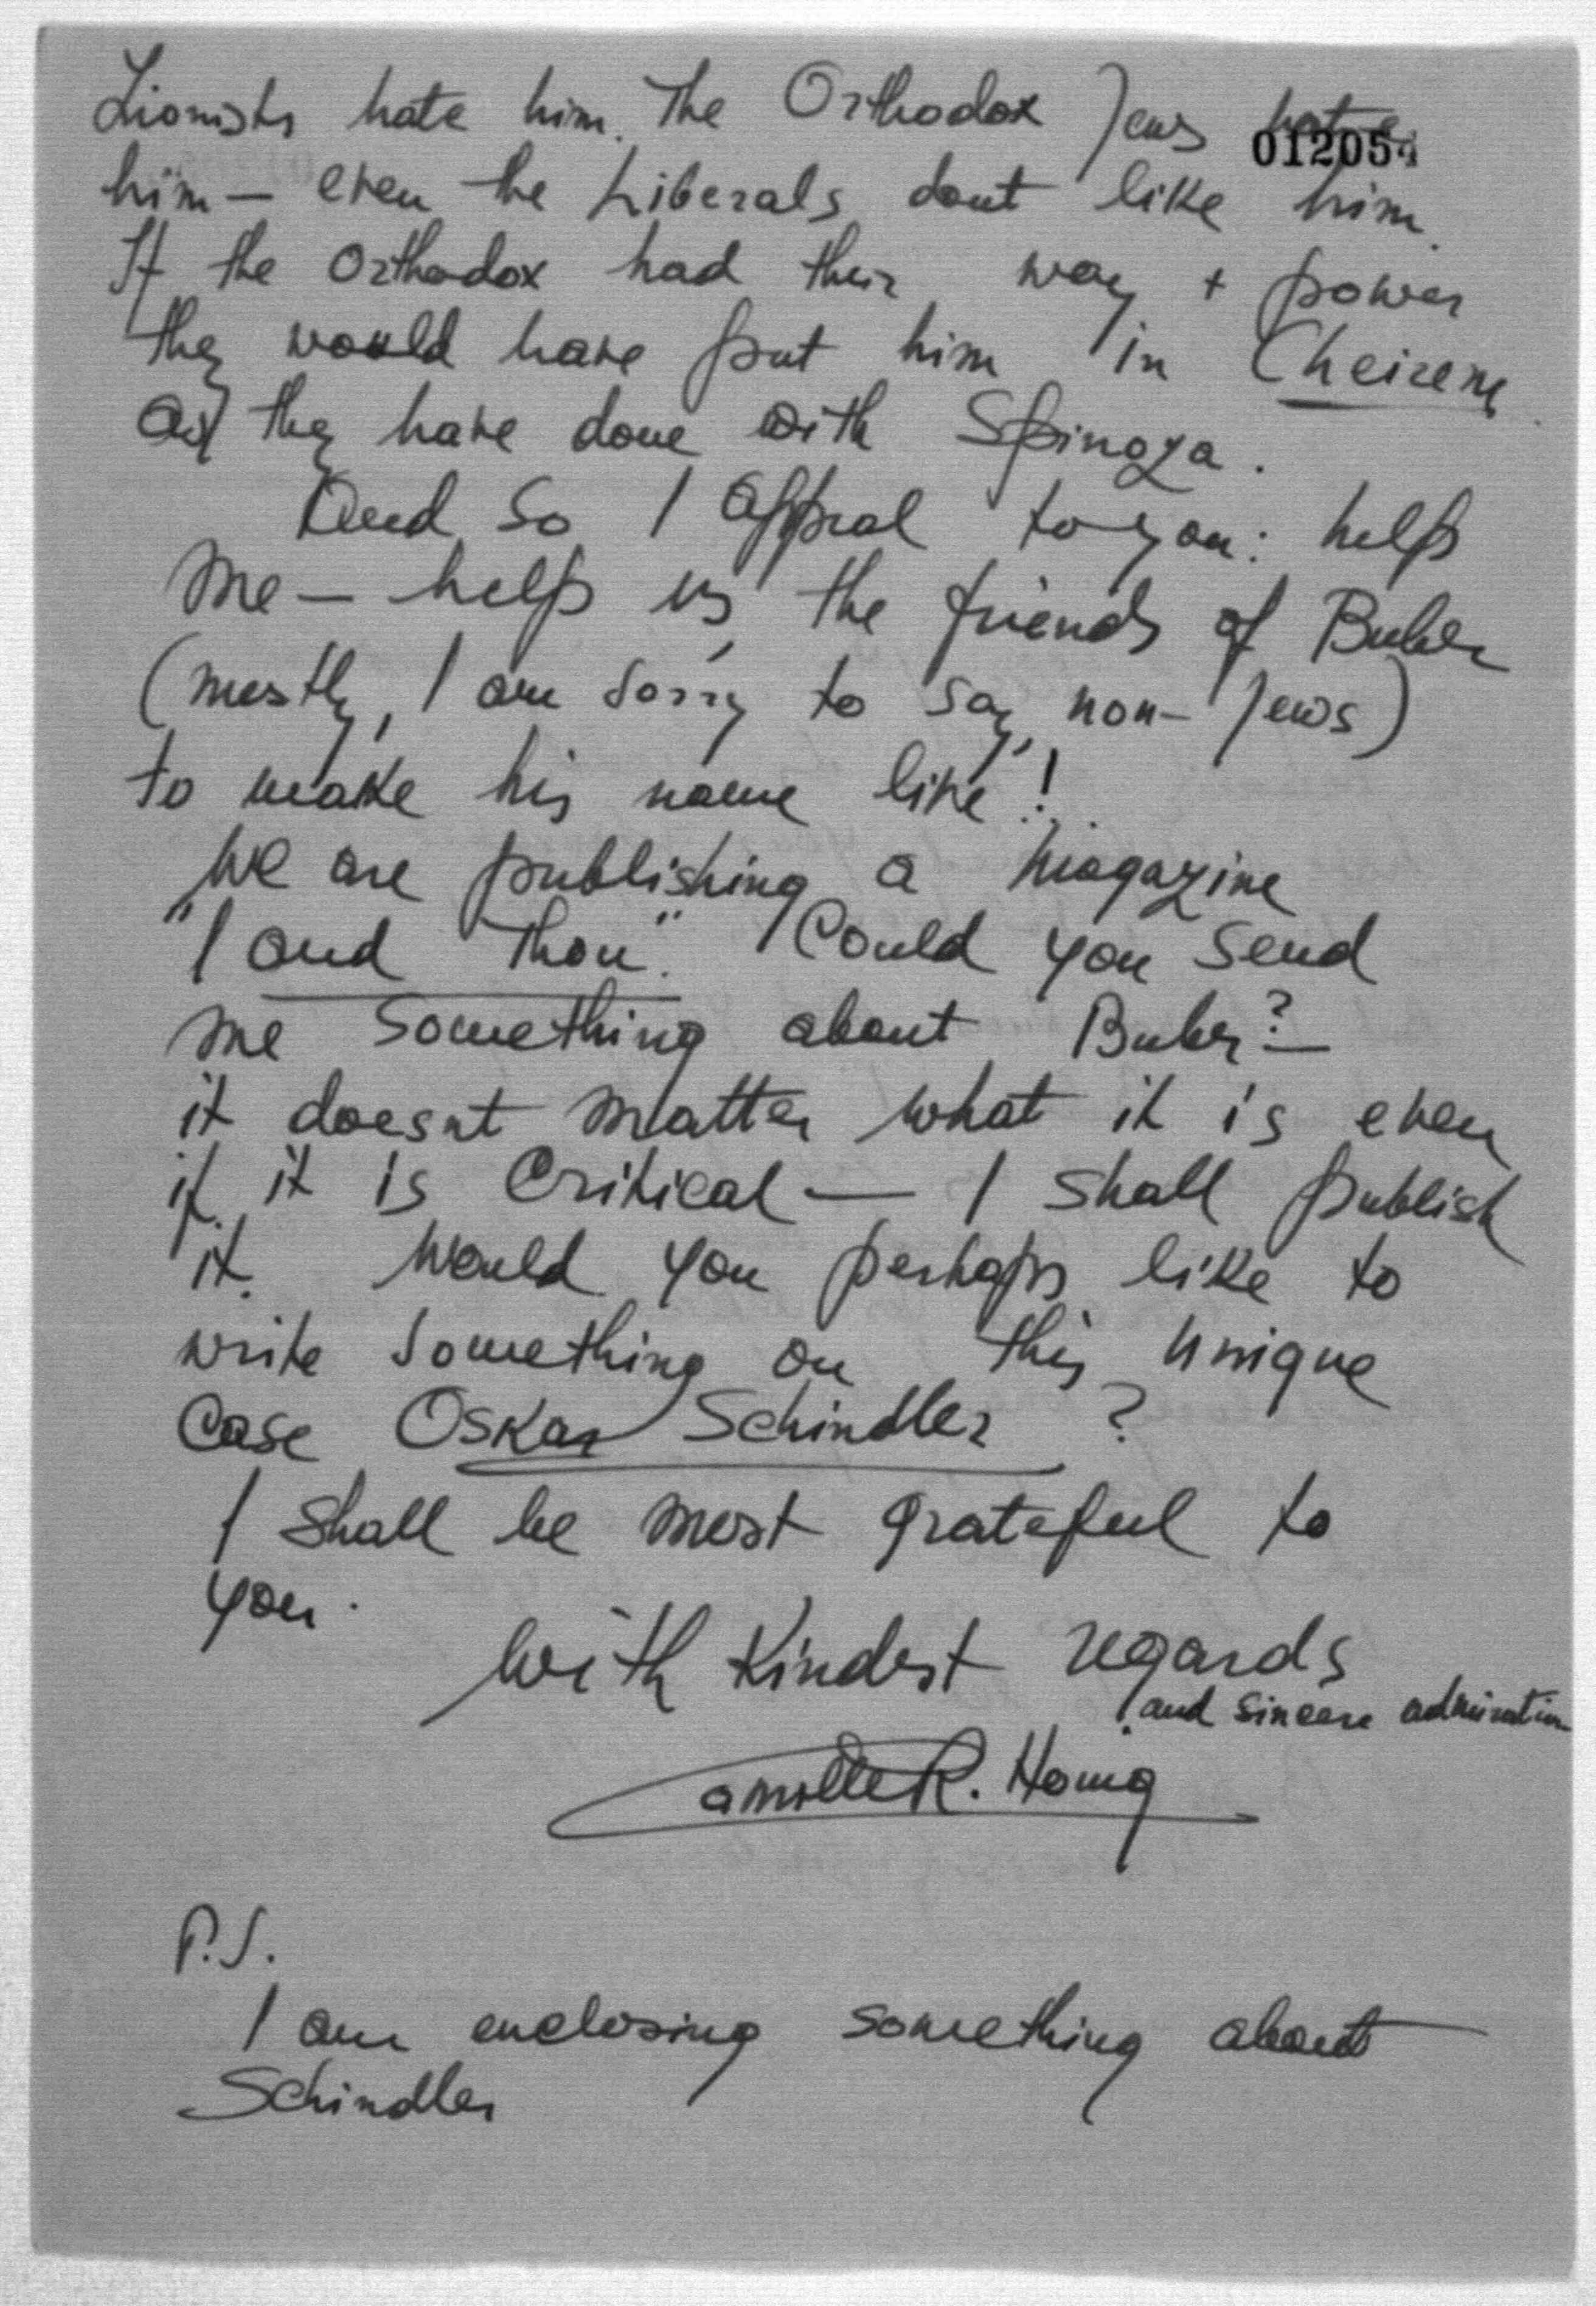 Zionists hate him. The Orthodox Jews hate
012054
him — even the Liberals dont like him.
If the Orthodox had their way + power
they would have put him in Cheirem
as they have done with Spinoza.
And so I appeal to you: help
me — help us, the friends of Buber
(mostly, I am sorry to say, non-Jews)
to make his name live!
We are publishing a magazine
"I and Thou". Could you send
me something about Buber? —
it doesnt matter what it is even
if it is critical — I shall publish
it. Would you perhaps like to
write something on this unique
case Oskar Schindler ?
I shall be most grateful to
you.
With kindest regards
and sincere admiration
Camille R. Honig
P.S.
I am enclosing something about
Schindler